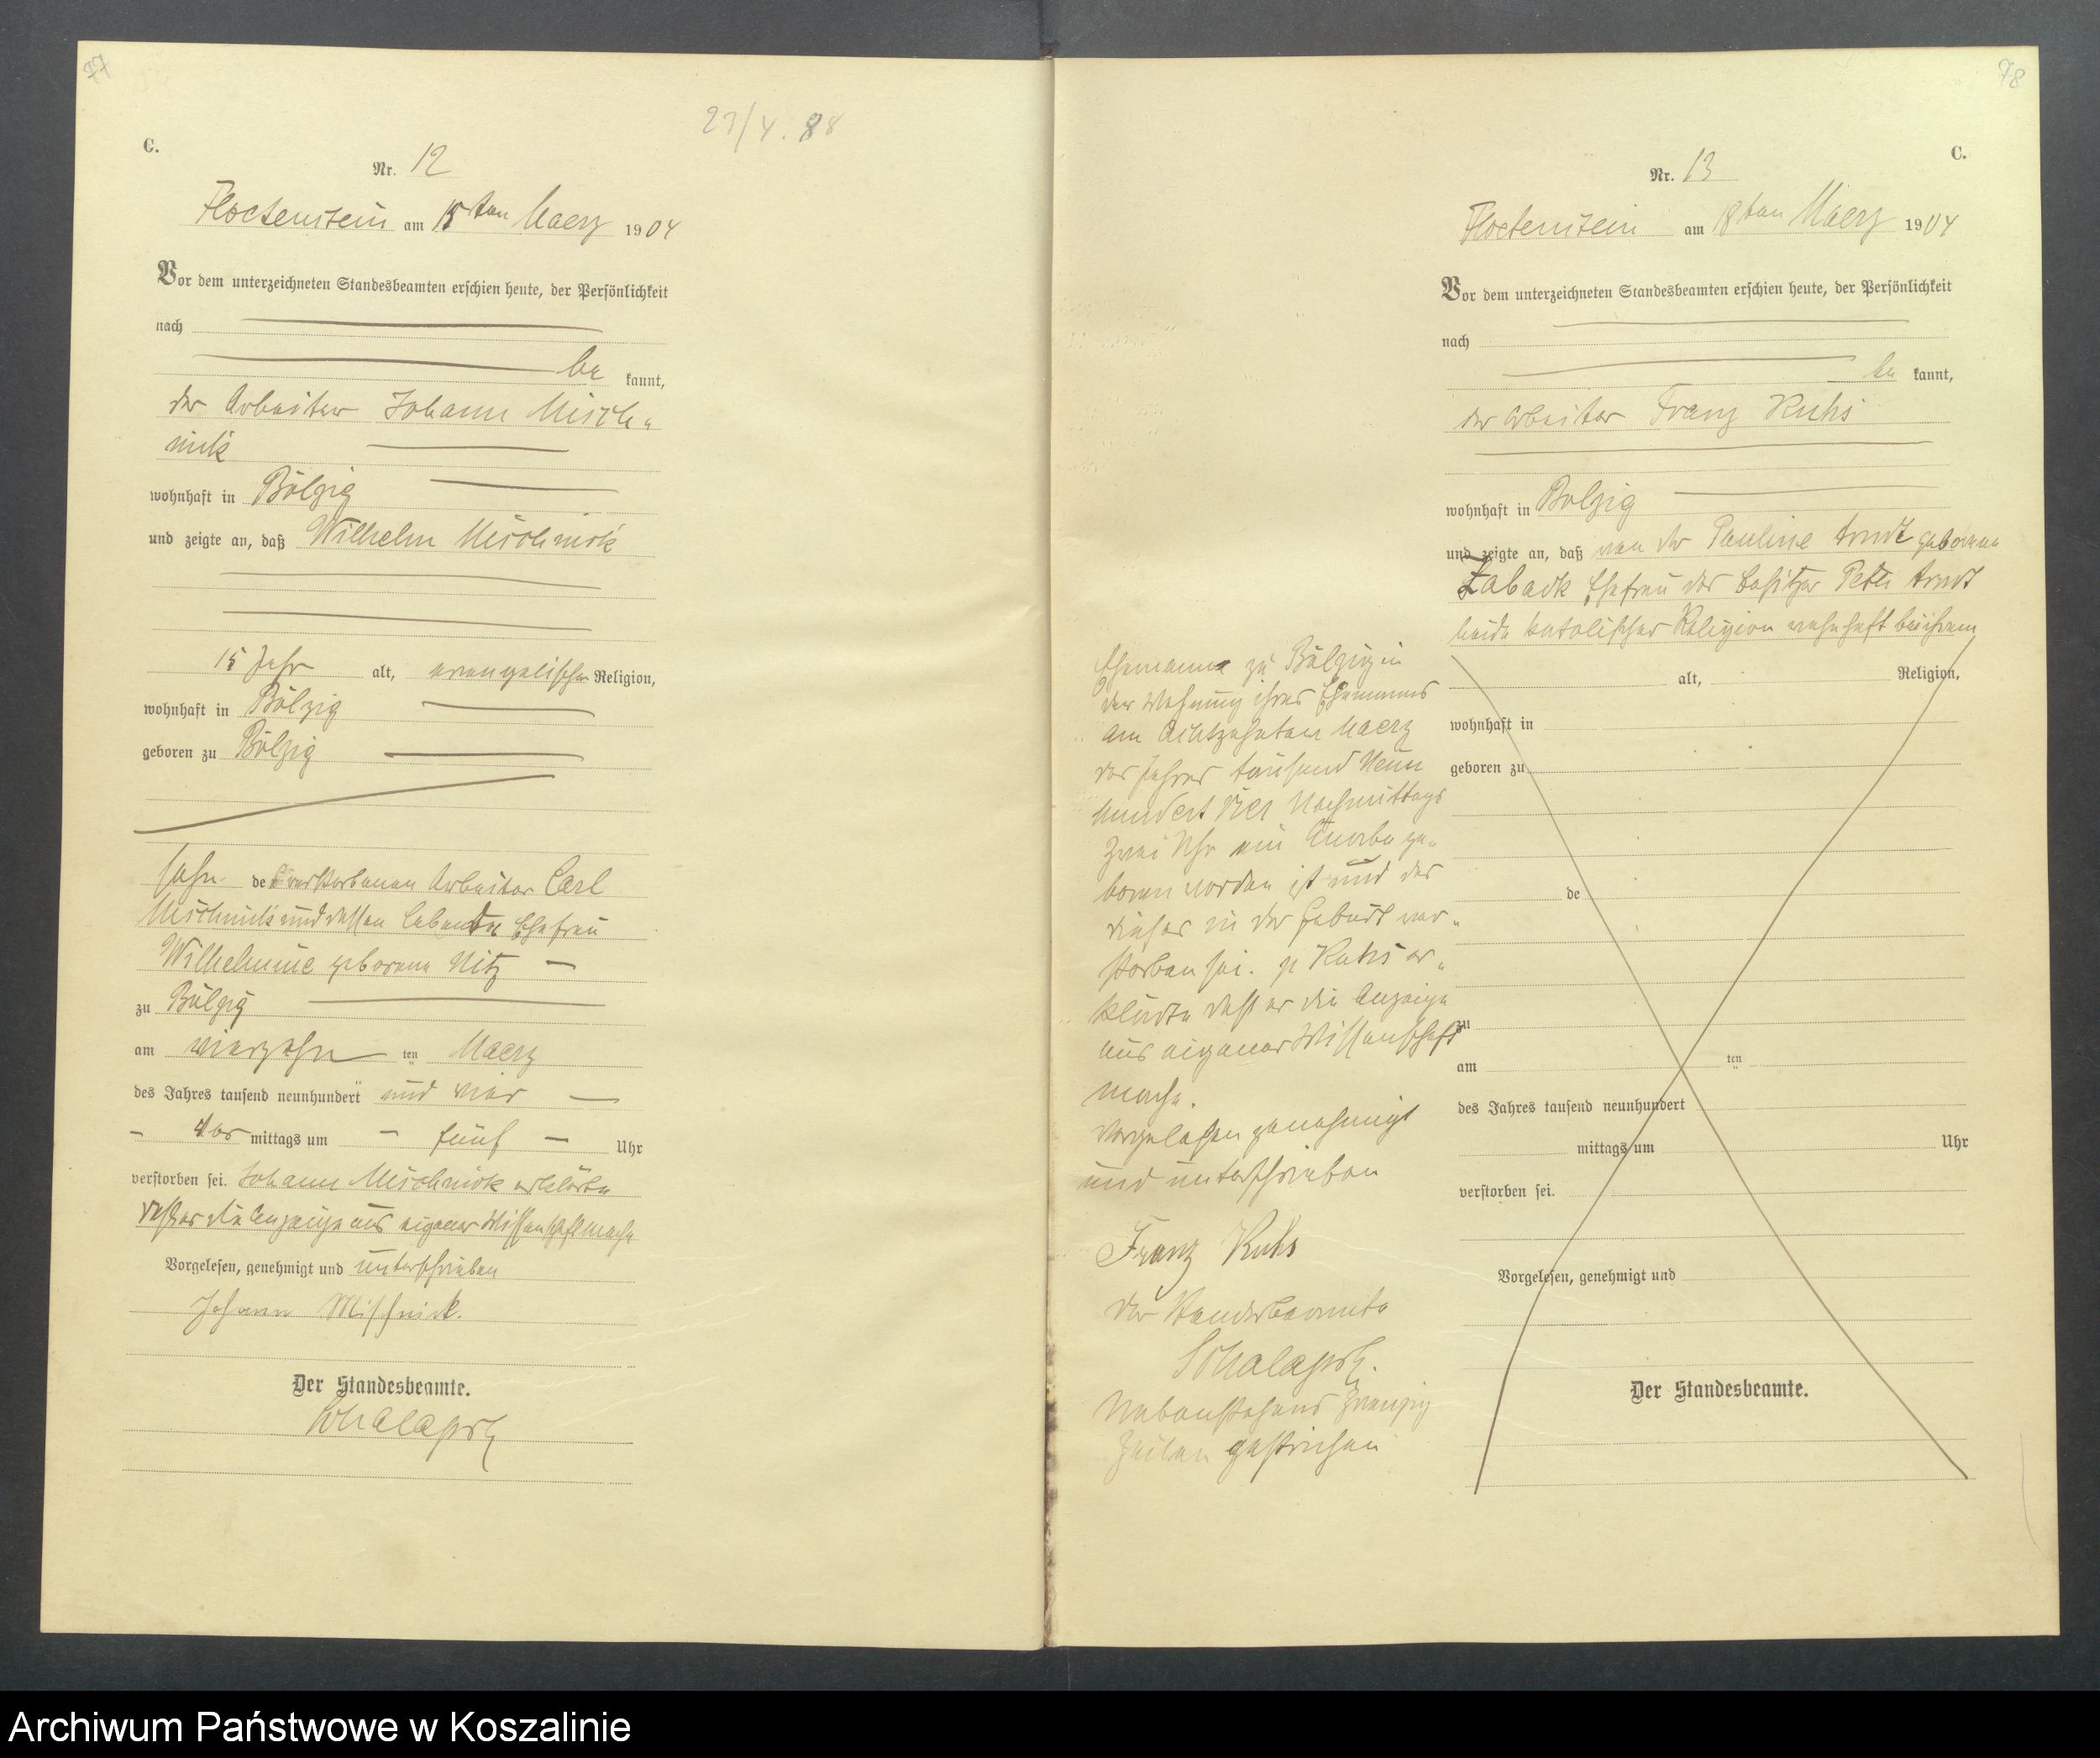 77
23/4. 88
C.
Nr. 12
Flötenstein am 15ten Maerz 1904
Vor dem unterzeichneten Standesbeamten erschien heute, der Persönlichkeit
nach
be kannt,
der Arbeiter Johann Misch-
nick
wohnhaft in Bölzig
und zeigte an, daß Wilhelm Mischnick
15 Jahr alt, evangelischer Religion,
wohnhaft in Bölzig
geboren zu Bölzig
Sohn des verstorbenen Arbeiter Carl
Mischnick und dessen lebenden Ehefrau
Wilhelmine geborene Nitz
zu Bölzig
am vierzehn ten Maerz
des Jahres tausend neunhundert und vier
Vor mittags um fünf Uhr
verstorben sei. Johann Mischnick erklärte
daß er die Anzeige aus eigener Wissenschaft mache
Vorgelesen, genehmigt und unterschrieben
Johann Mischnick.
Der Standesbeamte.
78
C.
Nr. 13
Flötenstein am 18ten Maerz 1904
Vor dem unterzeichneten Standesbeamten erschien heute, der Persönlichkeit
nach
be kannt,
der Arbeiter Franz Kuhs
wohnhaft in Bölzig
und zeigte an, daß von der Pauline Arndt geborene
Ehefrau des Besitzer Peter Arndt
beide katolischer Religion wohnhaft bei ihrem
Ehemanne zu Bölzig in
der Wohnung ihres Ehemanns
am Achtzehnten Maerz
des Jahres tausend Neun
hundert Vier Nachmittags
zwei Uhr ein Knabe ge-
boren worden ist und das
dieser in der Geburt ver-
storben sei. p Kuhs er-
klärte daß er die Anzeige
aus eigener Wissenschaft
mache.
Vorgelesen genehmigt
und unterschrieben
Franz Kuhs
Der Standesbeamte
Nebenstehend Zwanzig
Zeilen gestrichen
alt, Religion,
wohnhaft in
geboren zu
de
zu
am ten
des Jahres tausend neunhundert
mittags um Uhr
verstorben sei.
Vorgelesen, genehmigt und
Der Standesbeamte.
Archiwum Państwowe w Koszalinie